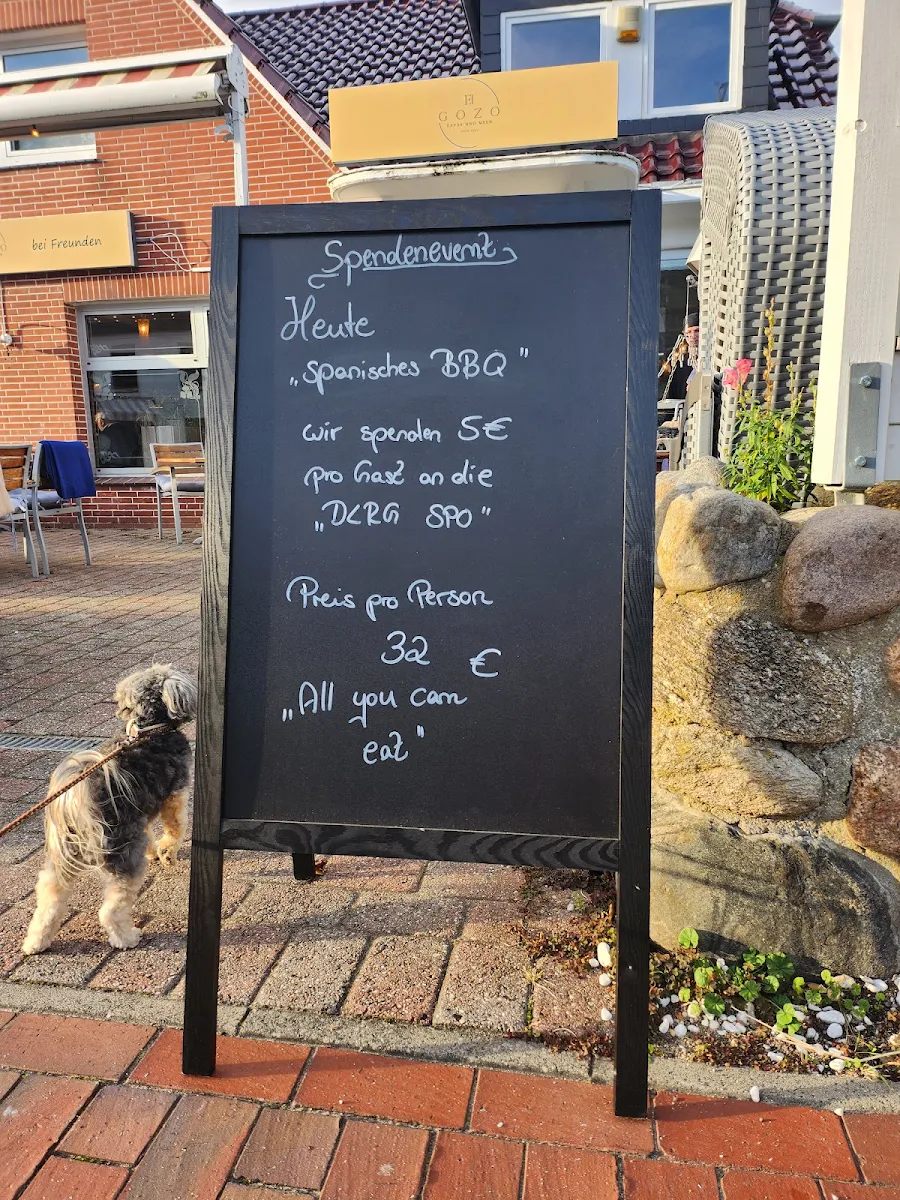 GOZO
bei Freunden
Spendenevent
Heute
„spanisches BBQ"
wir spenden 5€
pro Gast an die
„DLRG SPO"
Preis pro Person
32 €
„All you can
eat"